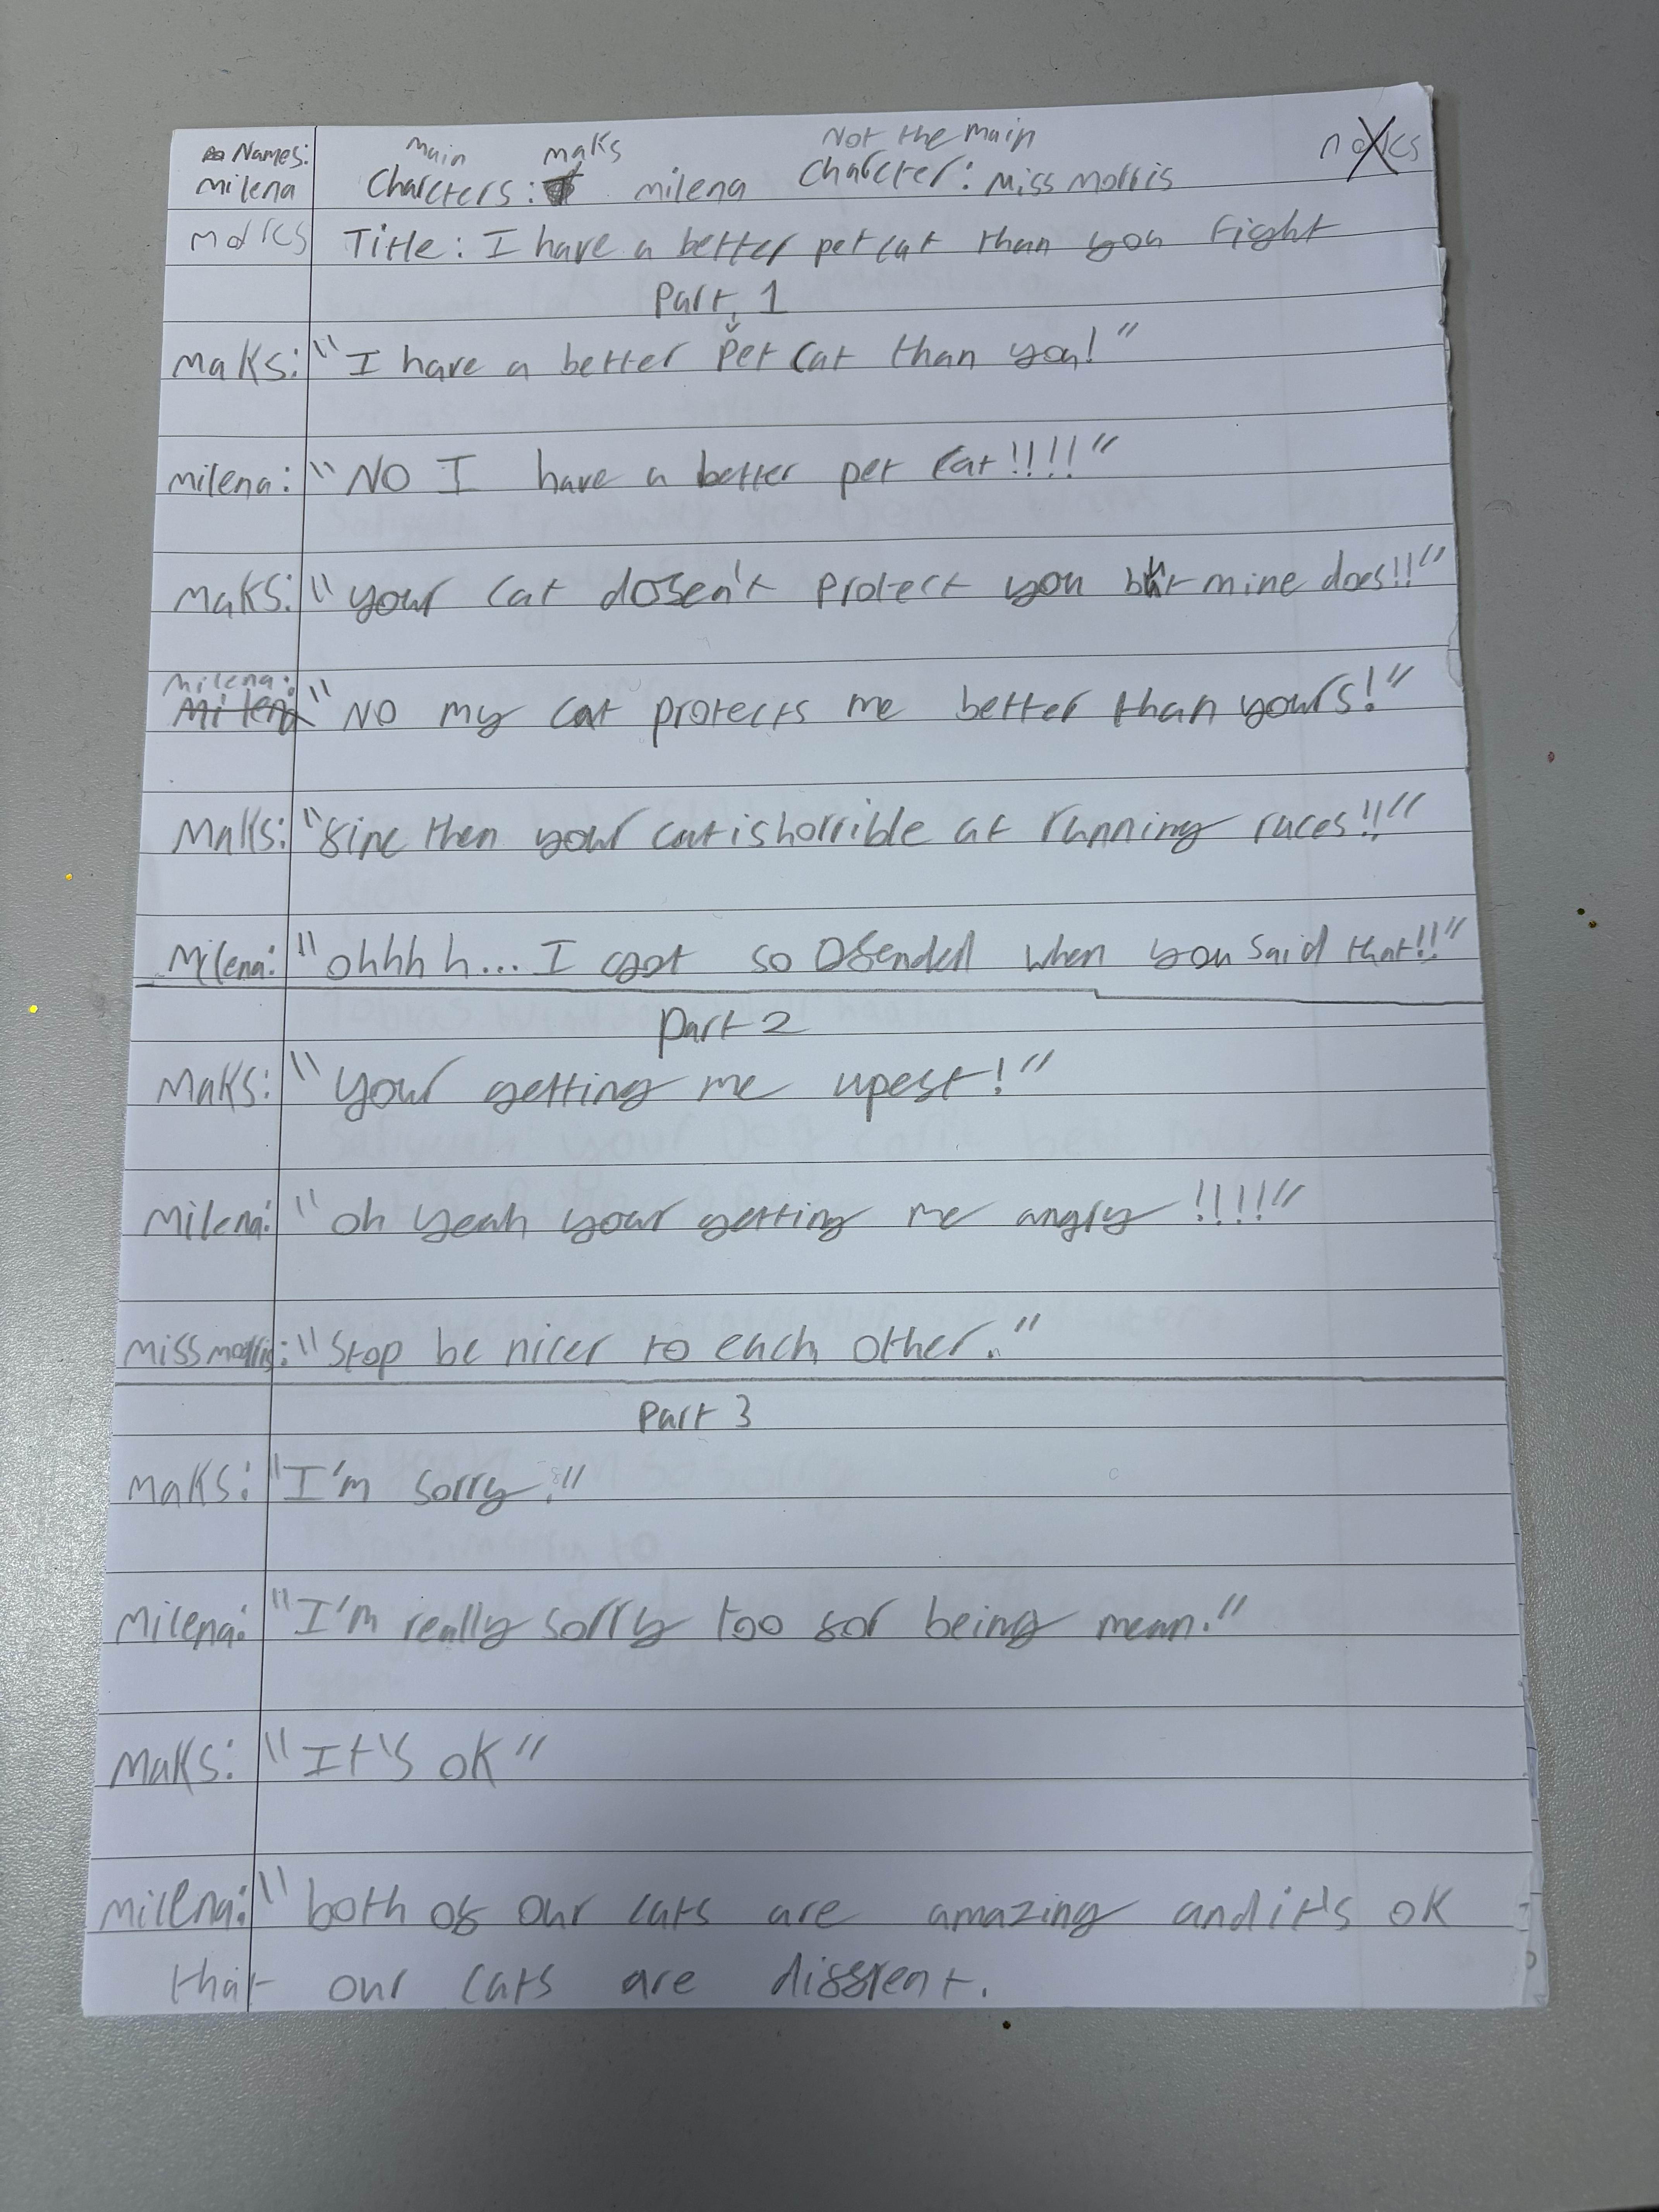 Names: Main maks Not the main
milena Charcters: milena Charcter: Miss morris
maks Title: I have a better pet cat than you Fight
Part 1
Maks: "I have a better Pet cat than you!"
milena: "NO I have a better pet cat!!!!"
Maks: "your cat dosen't protect you but mine does!!"
milena: "NO my cat protects me better than yours!"
Maks: "fine then your cat is horrible at running races!!"
Milena: "ohhhh... I got so Ofended when you said that!!"
Part 2
Maks: "Your getting me upest!"
Milena: "oh yeah your getting me angry!!!!"
miss morris: "Stop be nicer to each other."
Part 3
Maks: "I'm sorry."
Milena: "I'm really sorry too for being mean."
Maks: "It's ok"
milena: "both of our cats are amazing and it's ok
that our cats are diffrent.